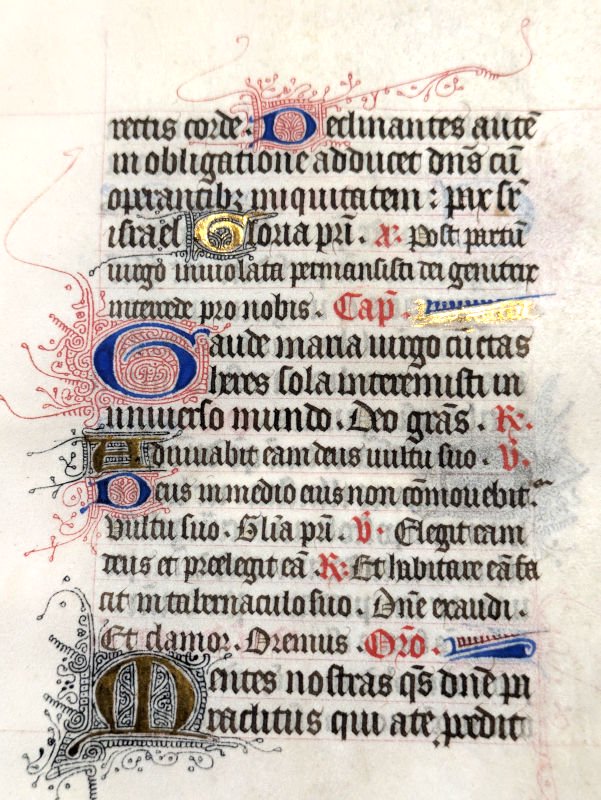 rectis corde. Declinantes autē
in obligatione adducet dn̄s cū
operantibꝫ iniquitatem : pax sr̄
israel Gloria pr̄i. a: Post partū
uirgo inuiolata permansisti dei genitrix
intercede pro nobis. Cap̄.
Gaude maria uirgo cūctas
hereses sola interemisti in
uniuerso mundo. Deo gr̄as. R:.
Adiuuabit eam deus uultu suo. V̄.
Deus in medio eius non cōmouebit.
Vultu suo. Gl̄ia pr̄i. V̄. Elegit eam
deus et preelegit eā. R: Et habitare eā fa
cit in tabernaculo suo. Dn̄e exaudi.
Et clamor. Oremus. Or̄o.
Mentes nostras qs̄ dn̄e pa
raclitus qui a te p̱cedit